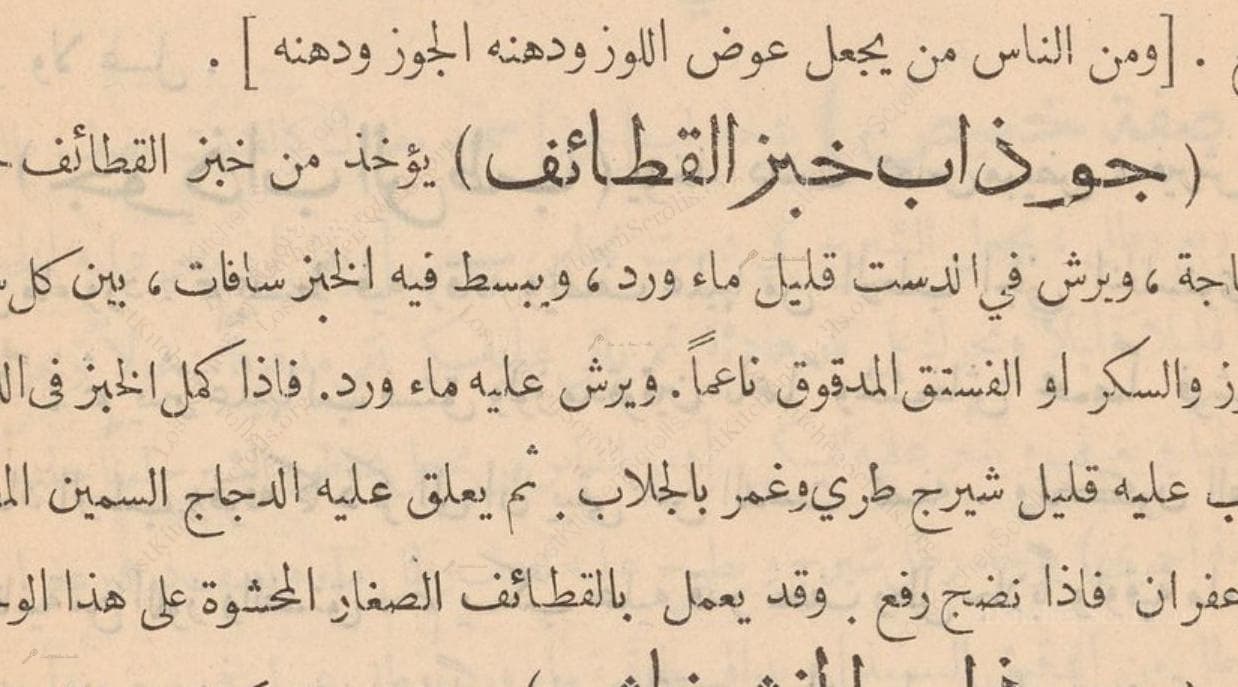 . [ومن الناس من يجعل عوض اللوز ودهنه الجوز ودهنه ] .
(جوذاب خبز القطائف) يؤخذ من خبز القطائف
، ويرش في الدست قليل ماء ورد ، ويبسط فيه الخبز سافات ، بين كل
والسكر او الفستق المدقوق ناعماً . ويرش عليه ماء ورد. فاذا كمل الخبز فى
عليه قليل شيرج طري وغمر بالجلاب . ثم يعلق عليه الدجاج السمين
فاذا نضج رفع . وقد يعمل بالقطائف الصغار المحشوة على هذا